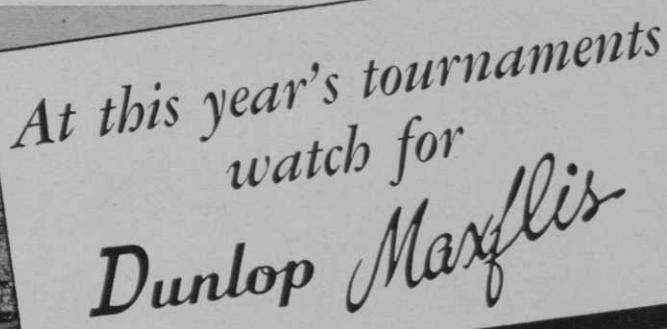 At this year's tournaments
watch for
Dunlop Maxflis